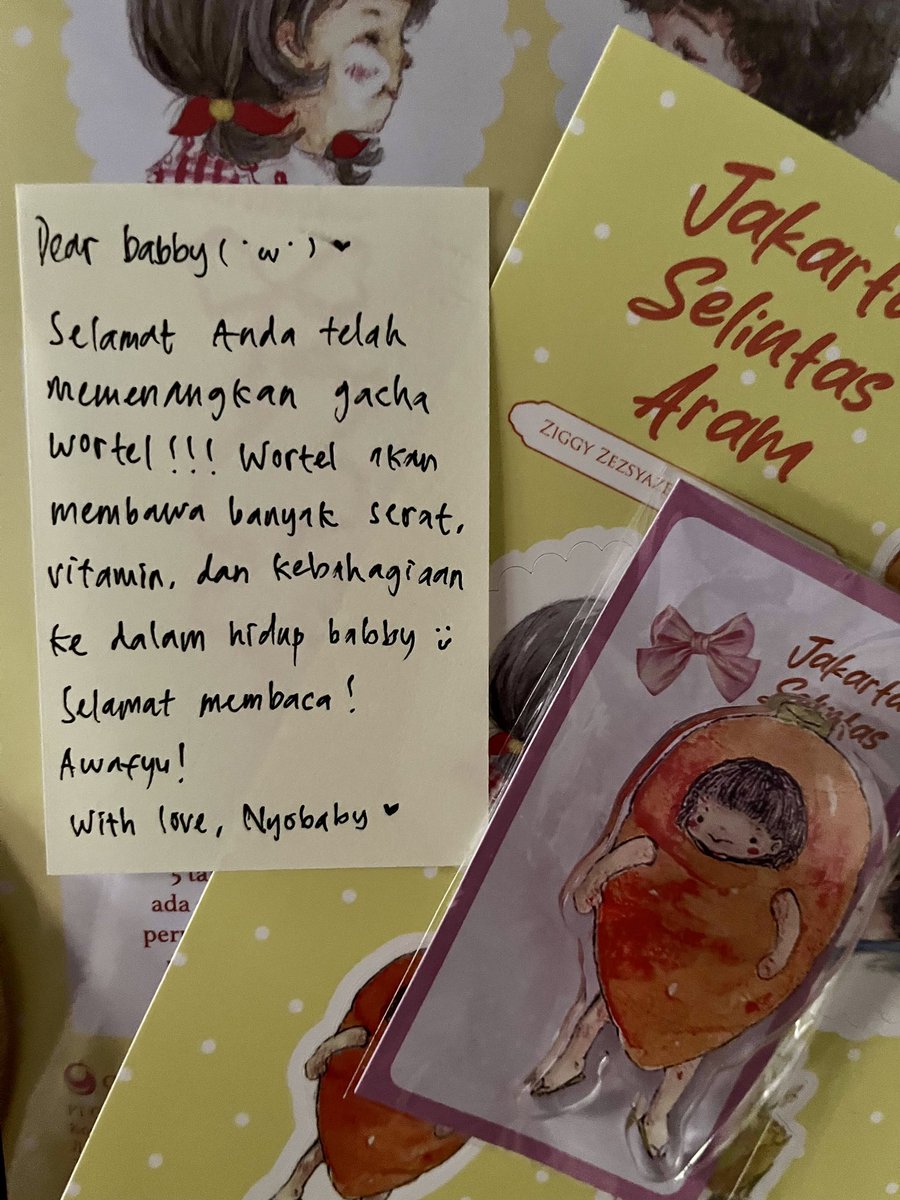 Dear babby (˙ω˙) ♥
Selamat Anda telah
memenangkan gacha
Wortel!!! Wortel akan
membawa banyak serat,
vitamin, dan kebahagiaan
ke dalam hidup babby ü
Selamat membaca!
Awafyu!
With love, Nyobaby ♥
Jakarta
Selintas
Aram
ZIGGY
Jakarta
Selintas
ada